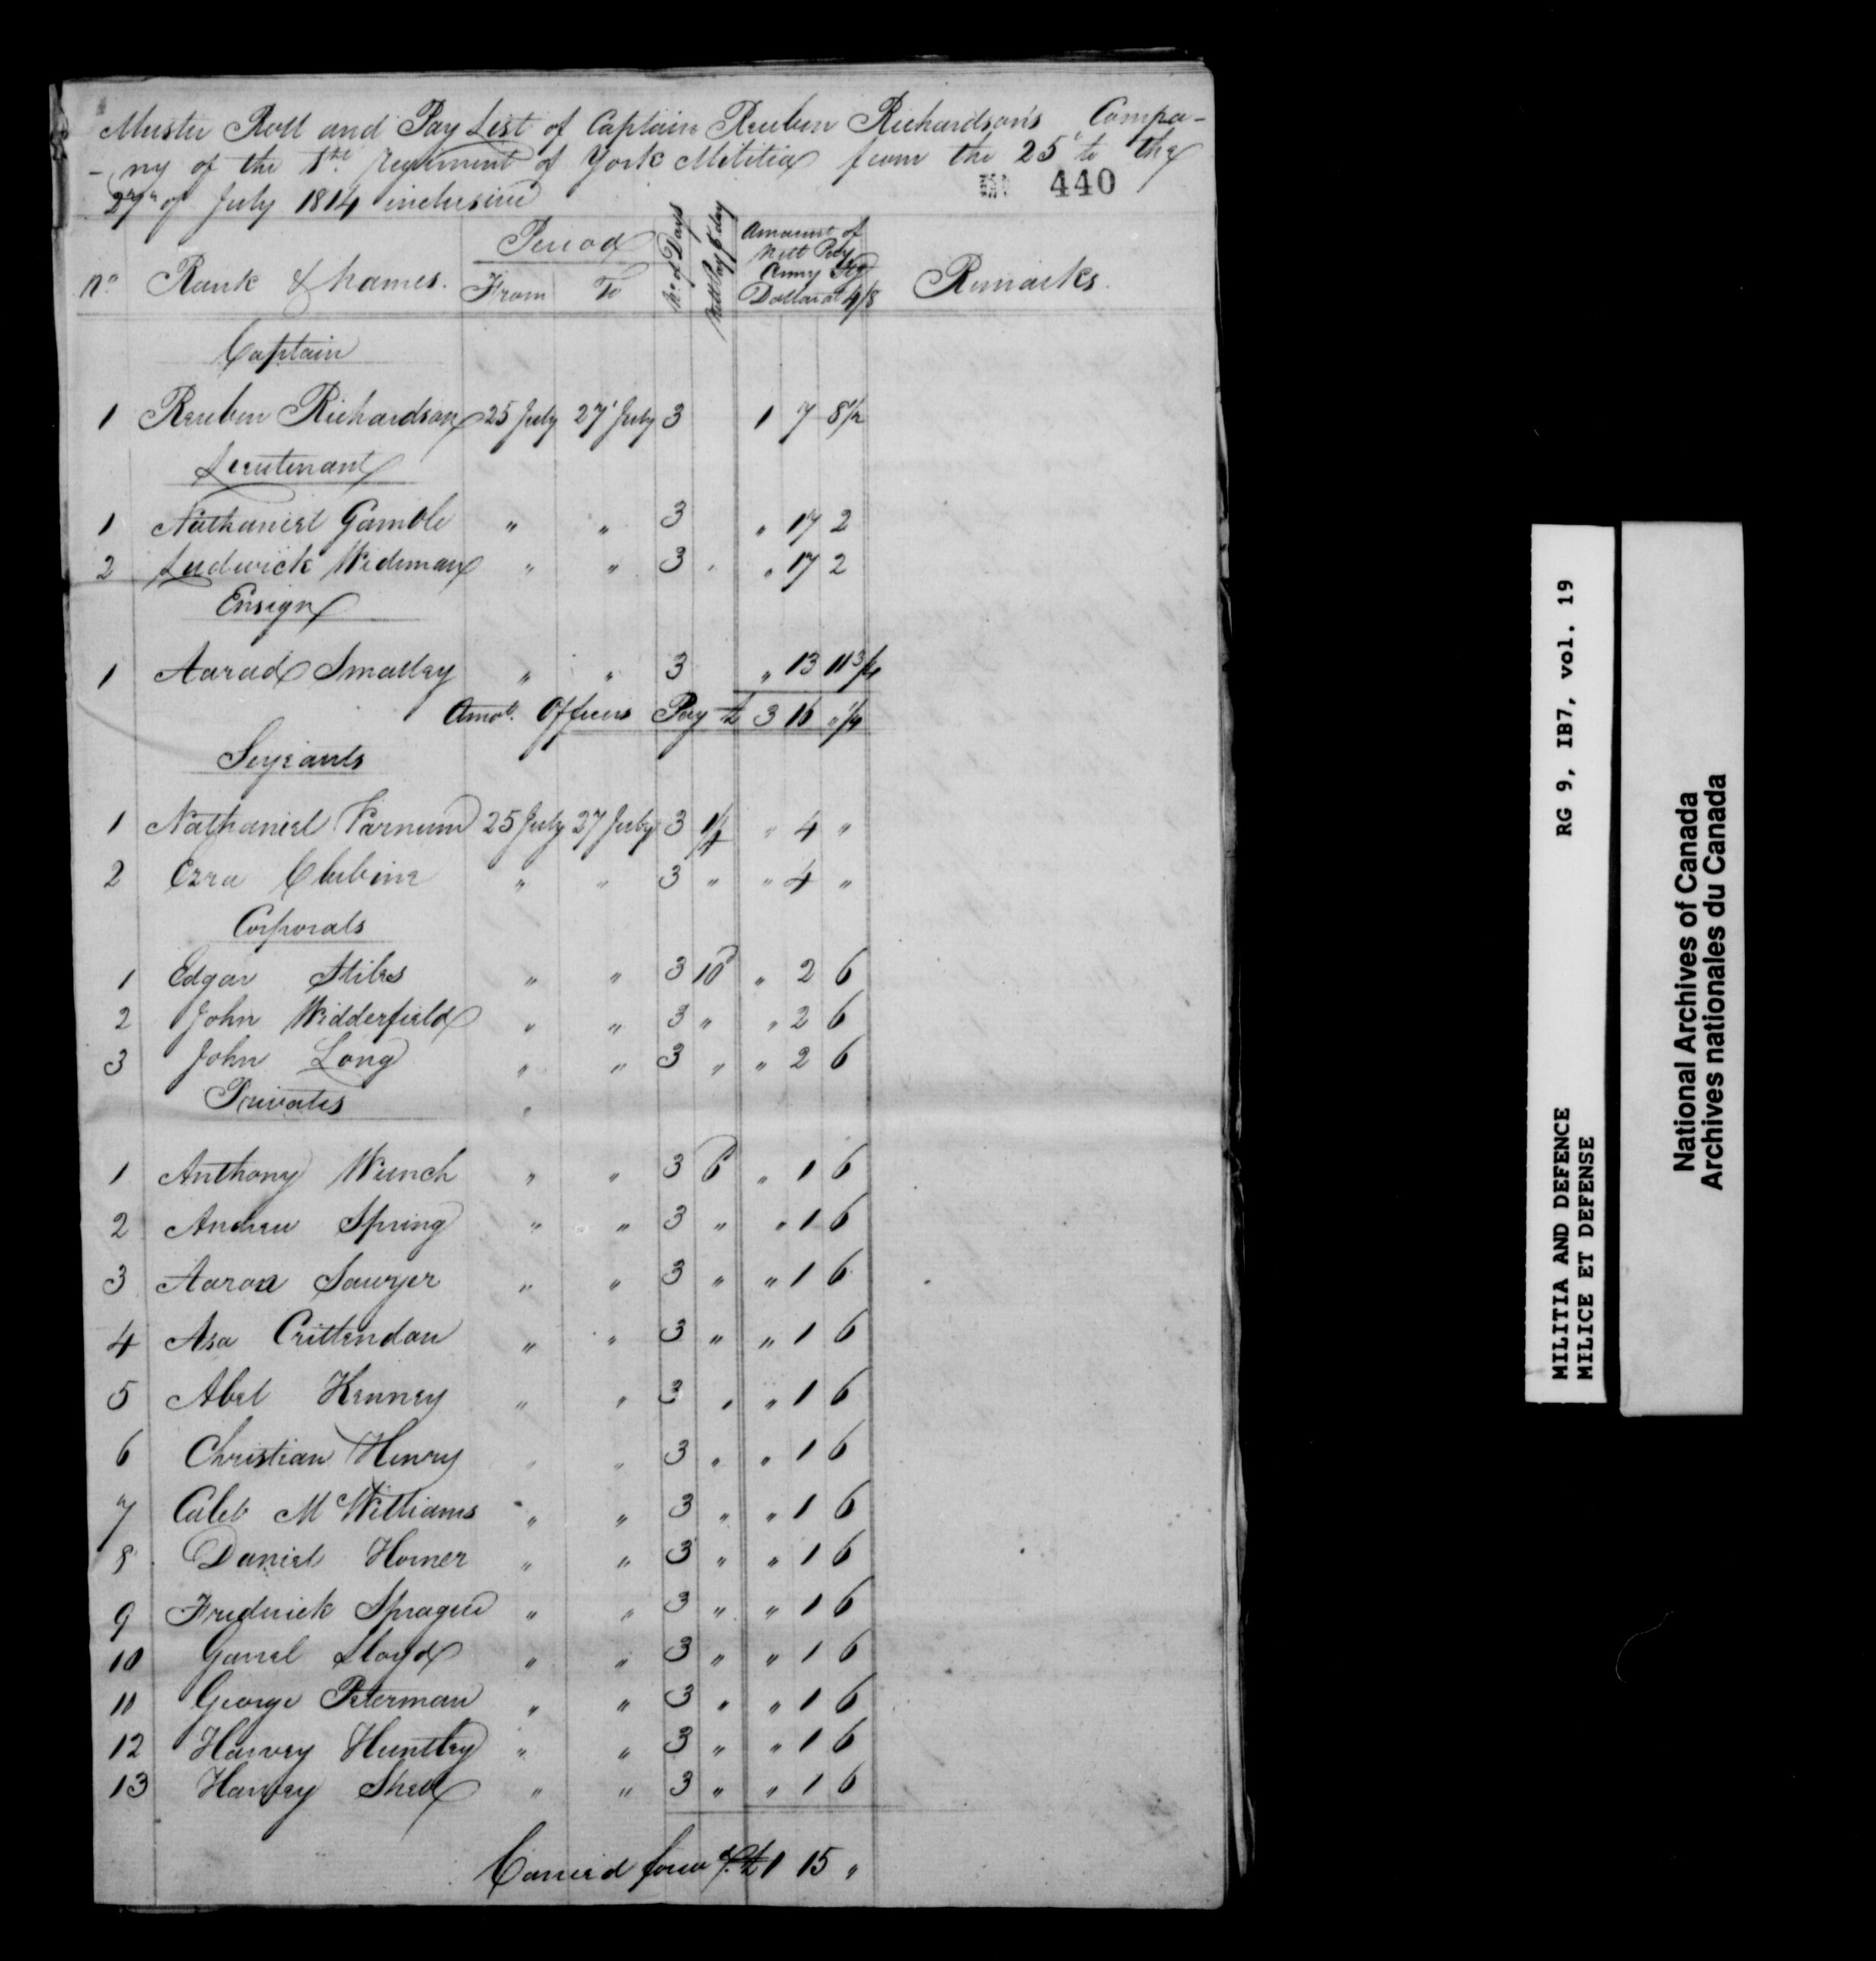 Muster Roll and Pay List of Captain Reuben Richardson's Compa-
-ny of the 1st regiment of York Militia from the 25th to the
27th of July 1814 inclusive
440
No Rank & Names. Period From To No of Days Nett Pay ⅌ day Amount of Nett Pay Army Stg Dollar at 4/8 Remarks.
Captain
1 Reuben Richardson 25 July 27 July 3 1 7 8½
Lieutenant
1 Nathaniel Gamble " " 3 " 17 2
2 Ludwick Wideman " " 3 " 17 2
Ensign
1 Smalley " " 3 " 13 11¾
Amot. Officers Pay £ 3 16 " ¼
Serjeants
1 Nathaniel Varnum 25 July 27 July 3 1/4 " 4 "
2 Ezra Clubine " " 3 " " 4 "
Corporals
1 Edgar Stiles " " 3 10 " 2 6
2 John Widderfield " " 3 " " 2 6
3 John Long " " 3 " " 2 6
Privates "
1 Anthony Wunch " " 3 6 " 1 6
2 Andrew Spring " " 3 " " 1 6
3 Aaron Sawyer " " 3 " " 1 6
4 Asa Crittendan " " 3 " " 1 6
5 Abel Kenney " " 3 " " 1 6
6 Christian Henry " " 3 " " 1 6
7 Caleb McWilliams " " 3 " " 1 6
8 Daniel Homer " " 3 " " 1 6
9 Frederick Sprague " " 3 " " 1 6
10 Lloyd " " 3 " " 1 6
11 George Peterman " " 3 " " 1 6
12 Harvey Huntley " " 3 " " 1 6
13 Harvey Shell " " 3 " " 1 6
Carried forwd £ 1 15 "
MILITIA AND DEFENCE RG 9, IB7, vol. 19
MILICE ET DEFENSE
National Archives of Canada
Archives nationales du Canada